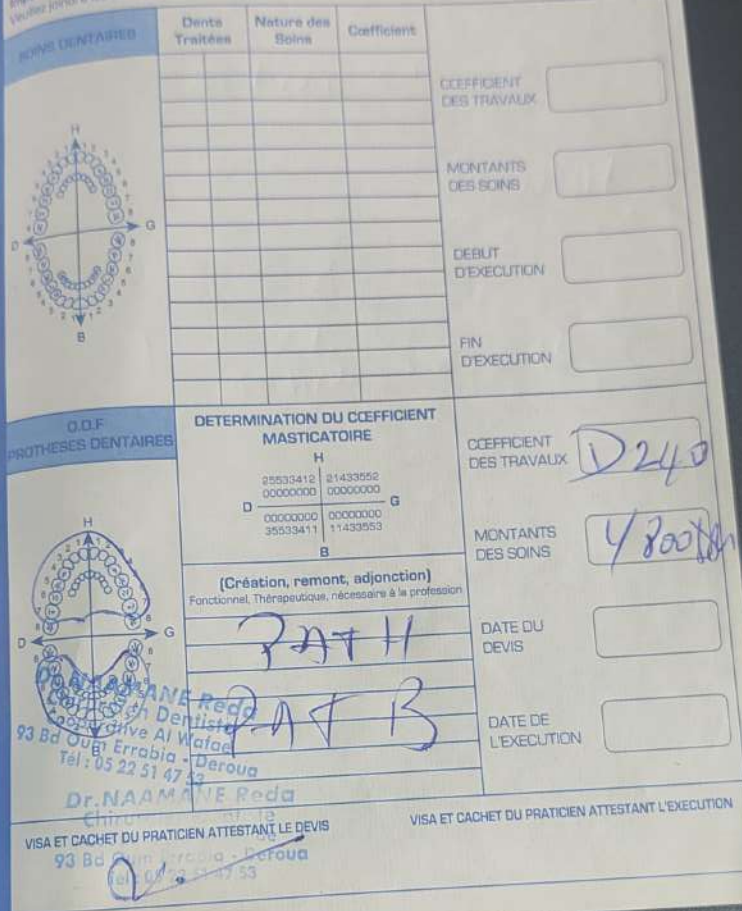 Veuillez joindre
SOINS DENTAIRES
Dents Traitées
Nature des Soins
Coefficient
COEFFICIENT DES TRAVAUX
MONTANTS DES SOINS
DEBUT D'EXECUTION
FIN D'EXECUTION
H
D
G
B
O.D.F
PROTHESES DENTAIRES
DETERMINATION DU CŒFFICIENT MASTICATOIRE
H
25533412 21433552
00000000 00000000
D G
00000000 00000000
35533411 11433553
B
(Création, remont, adjonction)
Fonctionnel, Thérapeutique, nécessaire à la profession
PATH
PAT B
COEFFICIENT DES TRAVAUX
D240
MONTANTS DES SOINS
4800Dh
DATE DU DEVIS
DATE DE L'EXECUTION
H
D
G
B
Dr.NAAMANE Reda
Dentiste
Coopérative Al Wafae
93 Bd Oum Errabia - Deroua
Tél : 05 22 51 47 53
Dr.NAAMANE Reda
VISA ET CACHET DU PRATICIEN ATTESTANT LE DEVIS
93 Bd Oum Errabia - Deroua
Tél : 05 22 51 47 53
VISA ET CACHET DU PRATICIEN ATTESTANT L'EXECUTION